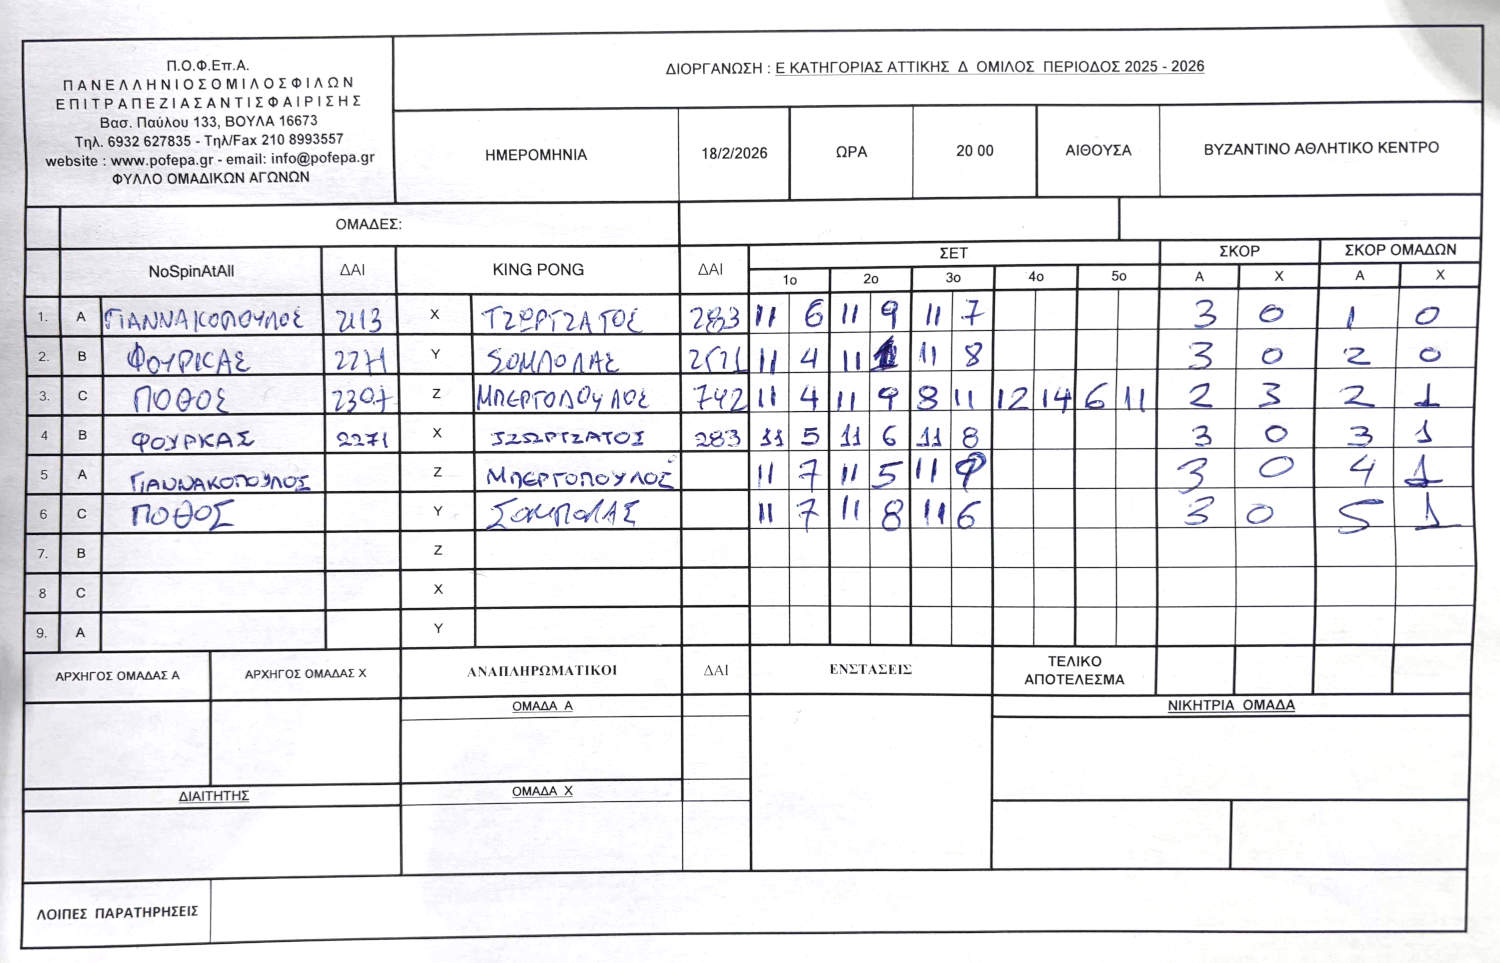 Π.Ο.Φ.Επ.Α.
ΠΑΝΕΛΛΗΝΙΟΣΟΜΙΛΟΣΦΙΛΩΝ
ΕΠΙΤΡΑΠΕΖΙΑΣΑΝΤΙΣΦΑΙΡΙΣΗΣ
Βασ. Παύλου 133, ΒΟΥΛΑ 16673
Τηλ. 6932 627835 - Τηλ/Fax 210 8993557
website : www.pofepa.gr - email: info@pofepa.gr
ΦΥΛΛΟ ΟΜΑΔΙΚΩΝ ΑΓΩΝΩΝ
ΔΙΟΡΓΑΝΩΣΗ : Ε ΚΑΤΗΓΟΡΙΑΣ ΑΤΤΙΚΗΣ Δ ΟΜΙΛΟΣ ΠΕΡΙΟΔΟΣ 2025 - 2026
ΗΜΕΡΟΜΗΝΙΑ 18/2/2026 ΩΡΑ 20 00 ΑΙΘΟΥΣΑ ΒΥΖΑΝΤΙΝΟ ΑΘΛΗΤΙΚΟ ΚΕΝΤΡΟ
ΟΜΑΔΕΣ:
NoSpinAtAll ΔΑΙ KING PONG ΔΑΙ ΣΕΤ ΣΚΟΡ ΣΚΟΡ ΟΜΑΔΩΝ
1ο 2ο 3ο 4ο 5ο Α Χ Α Χ
1. A ΓΙΑΝΝΑΚΟΠΟΥΛΟΣ 2113 X ΤΖΩΡΤΖΑΤΟΣ 283 11 6 11 9 11 7 3 0 1 0
2. B ΦΟΥΡΙΚΑΣ 2271 Y ΣΟΜΠΟΛΑΣ 11 4 11 11 8 3 0 2 0
3. C ΠΟΘΟΣ 2307 Z ΜΠΕΡΤΟΠΟΥΛΟΣ 742 11 4 11 9 8 11 12 14 6 11 2 3 2 1
4 B ΦΟΥΡΚΑΣ 2271 X ΤΖΩΡΤΖΑΤΟΣ 283 11 5 11 6 11 8 3 0 3 1
5 A ΓΙΑΝΝΑΚΟΠΟΥΛΟΣ Z ΜΠΕΡΤΟΠΟΥΛΟΣ 11 7 11 5 11 9 3 0 4 1
6 C ΠΟΘΟΣ Y ΣΟΜΠΟΛΑΣ 11 7 11 8 11 6 3 0 5 1
7. B Z
8 C X
9. A Y
ΑΡΧΗΓΟΣ ΟΜΑΔΑΣ Α ΑΡΧΗΓΟΣ ΟΜΑΔΑΣ Χ ΑΝΑΠΛΗΡΩΜΑΤΙΚΟΙ ΔΑΙ ΕΝΣΤΑΣΕΙΣ ΤΕΛΙΚΟ
ΑΠΟΤΕΛΕΣΜΑ
ΟΜΑΔΑ Α ΝΙΚΗΤΡΙΑ ΟΜΑΔΑ
ΔΙΑΙΤΗΤΗΣ ΟΜΑΔΑ Χ
ΛΟΙΠΕΣ ΠΑΡΑΤΗΡΗΣΕΙΣ